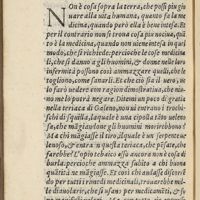 NOn è cosa sopra la terra, che possi piu gi
uare alla uita humana, quanto fa la me
dicina, quando però ella è bene intesa. Et
per il contrario non si troua cosa piu nociua, quã
to è la medicina, quando non uiene intesa in quel
modo, che si richiede: percioche le cose medicina
li, che si danno a gli huomini, & donne nelle loro
infermità possono cosi ammazzare quelli, che le
togliono, come sanarli. Et che ciò sia il uero, io
lo farò uedere con ragion dimostratiua, che nis-
no me lo potrà negare. Ditemi un poco di gratia
nella teriaca di Galeno, non ui entrano i trochi-
schi di squilla, la qual squilla è una cipolla tãto ue
lenosa, che mãgiadone gli huomini morirebbono?
Ma chi mãgiasse il tiro, ilquale è un serpente ue
lenoso, & entra in questa teriaca, che pẽsate, che
farebbe? L'opio thebaico, esso ancora non è cosa di
burla: percioche ammazza subito a chi buona
quãtità ne mãgiasse. Et cosi se si uolesse discorrer
do per tutti i rimedi medicinali, trouarebbe mil-
le diauolerie, che si usan per medicamenti, &